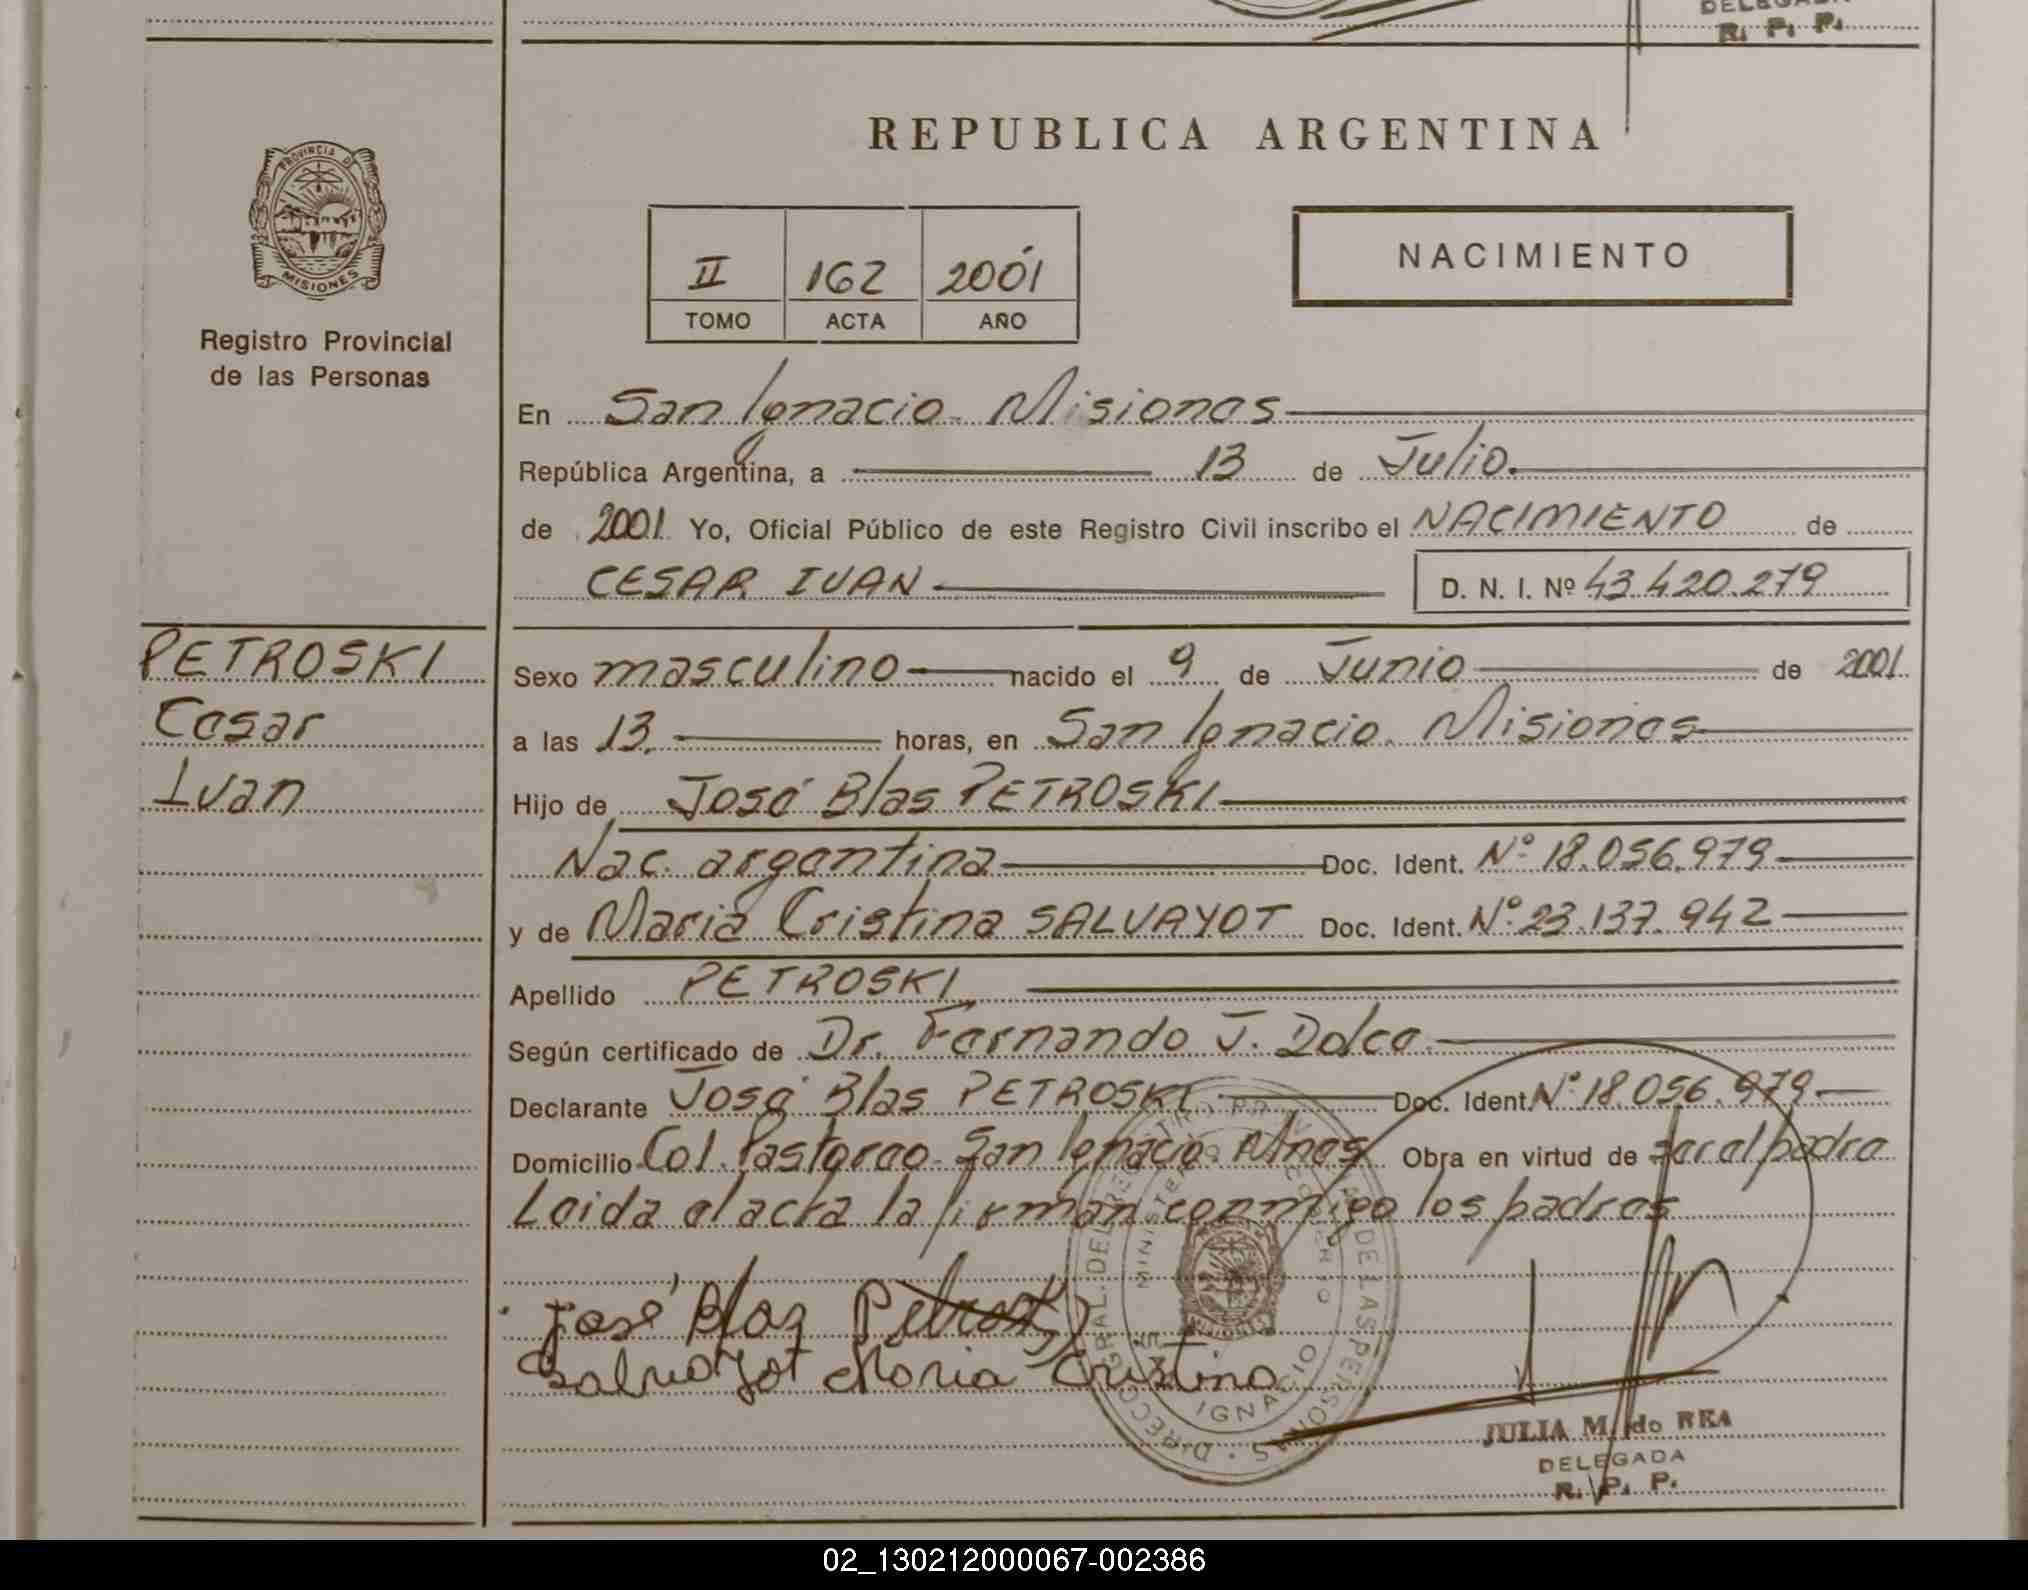 DELEGADA
R. P. P.
REPUBLICA ARGENTINA
PROVINCIA DE
MISIONES
Registro Provincial
de las Personas
II 162 2001
TOMO ACTA AÑO
NACIMIENTO
En San Ignacio - Misiones
República Argentina, a 13 de Julio
de 2001 Yo, Oficial Público de este Registro Civil inscribo el NACIMIENTO de
CESAR IVAN D. N. I. Nº 43.420.279
PETROSKI
Cesar
Ivan
Sexo masculino nacido el 9 de Junio de 2001
a las 13. horas, en San Ignacio. Misiones
Hijo de José Blas PETROSKI
Nac. argentina Doc. Ident. Nº 18.056.979
y de Maria Cristina SALVAYOT Doc. Ident. Nº 23.137.942
Apellido PETROSKI
Según certificado de Dr. Fernando J. Dolce
Declarante José Blas PETROSKI Doc. Ident. Nº 18.056.979
Domicilio Col. Pastoreo - San Ignacio Mnes Obra en virtud de ser el padre
Leida el acta la firman conmigo los padres
José Blas Petroski
Salvayot Maria Cristina
DIRECC. GRAL. DEL REGISTRO PROV. DE LAS PERSONAS
MINISTERIO DE GOBIERNO
IGNACIO
JULIA M. de REA
DELEGADA
R. P. P.
02_130212000067-002386